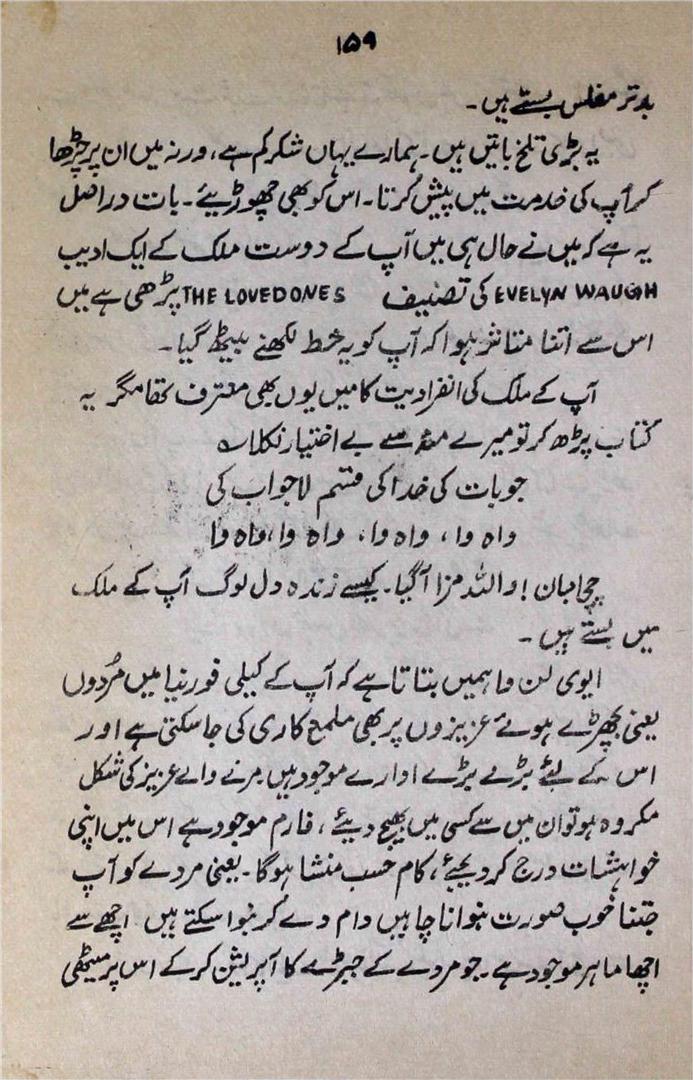 ۱۵۹
بدتر مفلس بستے ہیں۔
یہ بڑی تلخ باتیں ہیں۔ ہمارے یہاں شکر کم ہے، ورنہ میں ان پر چڑھا
کر آپ کی خدمت میں پیش کرتا۔ اس کو بھی چھوڑیئے۔ بات دراصل
یہ ہے کہ میں نے حال ہی میں آپ کے دوست ملک کے ایک ادیب
EVELYN WAUGH کی تصنیف THE LOVED ONES پڑھی ہے میں
اس سے اتنا متاثر ہوا کہ آپ کو یہ خط لکھنے بیٹھ گیا۔
آپ کے ملک کی انفرادیت کا میں یوں بھی معترف تھا مگر یہ
کتاب پڑھ کر تو میرے منہ سے بے اختیار نکلا؎
جو بات کی خدا کی قسم لاجواب کی
واہ وا، واہ وا، واہ وا، واہ وا
چچا جان! واللہ مزا آگیا۔ کیسے زندہ دل لوگ آپ کے ملک
میں بستے ہیں۔
ایوی لن وا ہمیں بتاتا ہے کہ آپ کے کیلی فورنیا میں مُردوں
یعنی بچھڑے ہوئے عزیزوں پر بھی ملمع کاری کی جاسکتی ہے اور
اس کے لیئے بڑے بڑے ادارے موجود ہیں مرنے والے عزیز کی شکل
مکروہ ہو تو ان میں سے کسی میں بھیج دیئے، فارم موجود ہے اس میں اپنی
خواہشات درج کر دیجئے، کام حسب منشا ہوگا۔ یعنی مردے کو آپ
جتنا خوب صورت بنوانا چاہیں دام دے کر بنوا سکتے ہیں اچھے سے
اچھا ماہر موجود ہے۔ جو مردے کے جبڑے کا آپریشن کرکے اس پر میٹھی